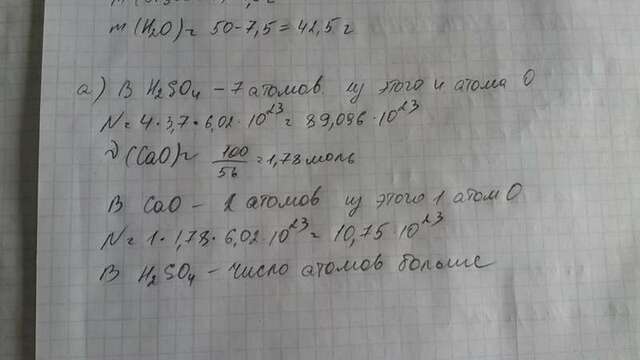 m(H₂O) = 50 - 7,5 = 42,5 г
а) В H₂SO₄ - 7 атомов. из этого 4 атома O
N = 4 · 3,7 · 6,02 · 10²³ = 89,096 · 10²³
ν(CaO) = 100/56 = 1,78 моль
В CaO - 2 атомов из этого 1 атом O
N = 1 · 1,78 · 6,02 · 10²³ = 10,75 · 10²³
В H₂SO₄ - число атомов больше